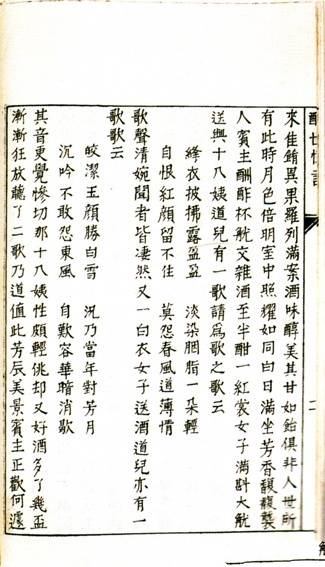 醒世恒言
二
來佳餚異果羅列滿案酒味醇美其甘如飴俱非人世所
有此時月色倍明室中照耀如同白日滿坐芳香馥馥襲
人賓主酬酢杯觥交雜酒至半酣一紅裳女子滿斟大觥
送與十八姨道兒有一歌請爲歌之歌云
絳衣披拂露盈盈 淡染胭脂一朶輕
自恨紅顔留不住 莫怨春風道薄情
歌聲清婉聞者皆凄然又一白衣女子送酒道兒亦有一
歌歌云
皎潔玉顔勝白雪 况乃當年對芳月
沉吟不敢怨東風 自歎容華暗消歇
其音更覺慘切那十八姨性頗輕佻却又好酒多了幾盃
漸漸狂放聽了二歌乃道值此芳辰美景賓主正歡何遽